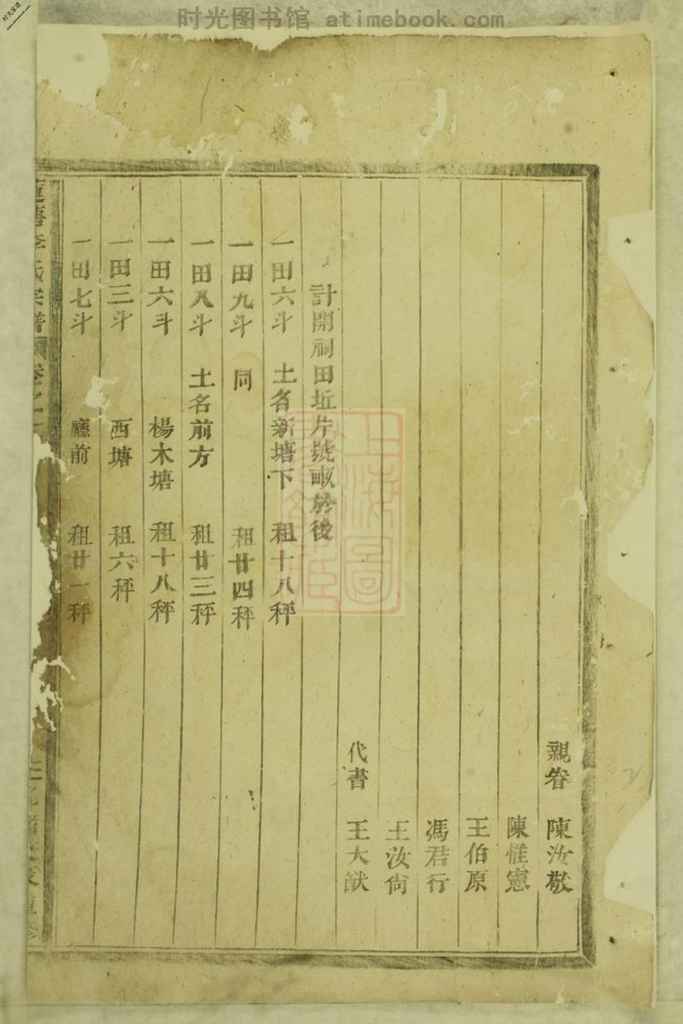 时光图书馆 atimebook.com
親眷 陳汝敬
陳惟憲
王伯原
馮君行
王汝尙
代書 王大猷
計開祠田坵片號畝於後
一田六斗 土名新塘下 租十八秤
一田九斗 同 租廿四秤
一田八斗 土名前方 租廿三秤
一田六斗 楊木塘 租十八秤
一田三斗 西塘 租六秤
一田七斗 廳前 租廿一秤
李氏宗譜 卷之